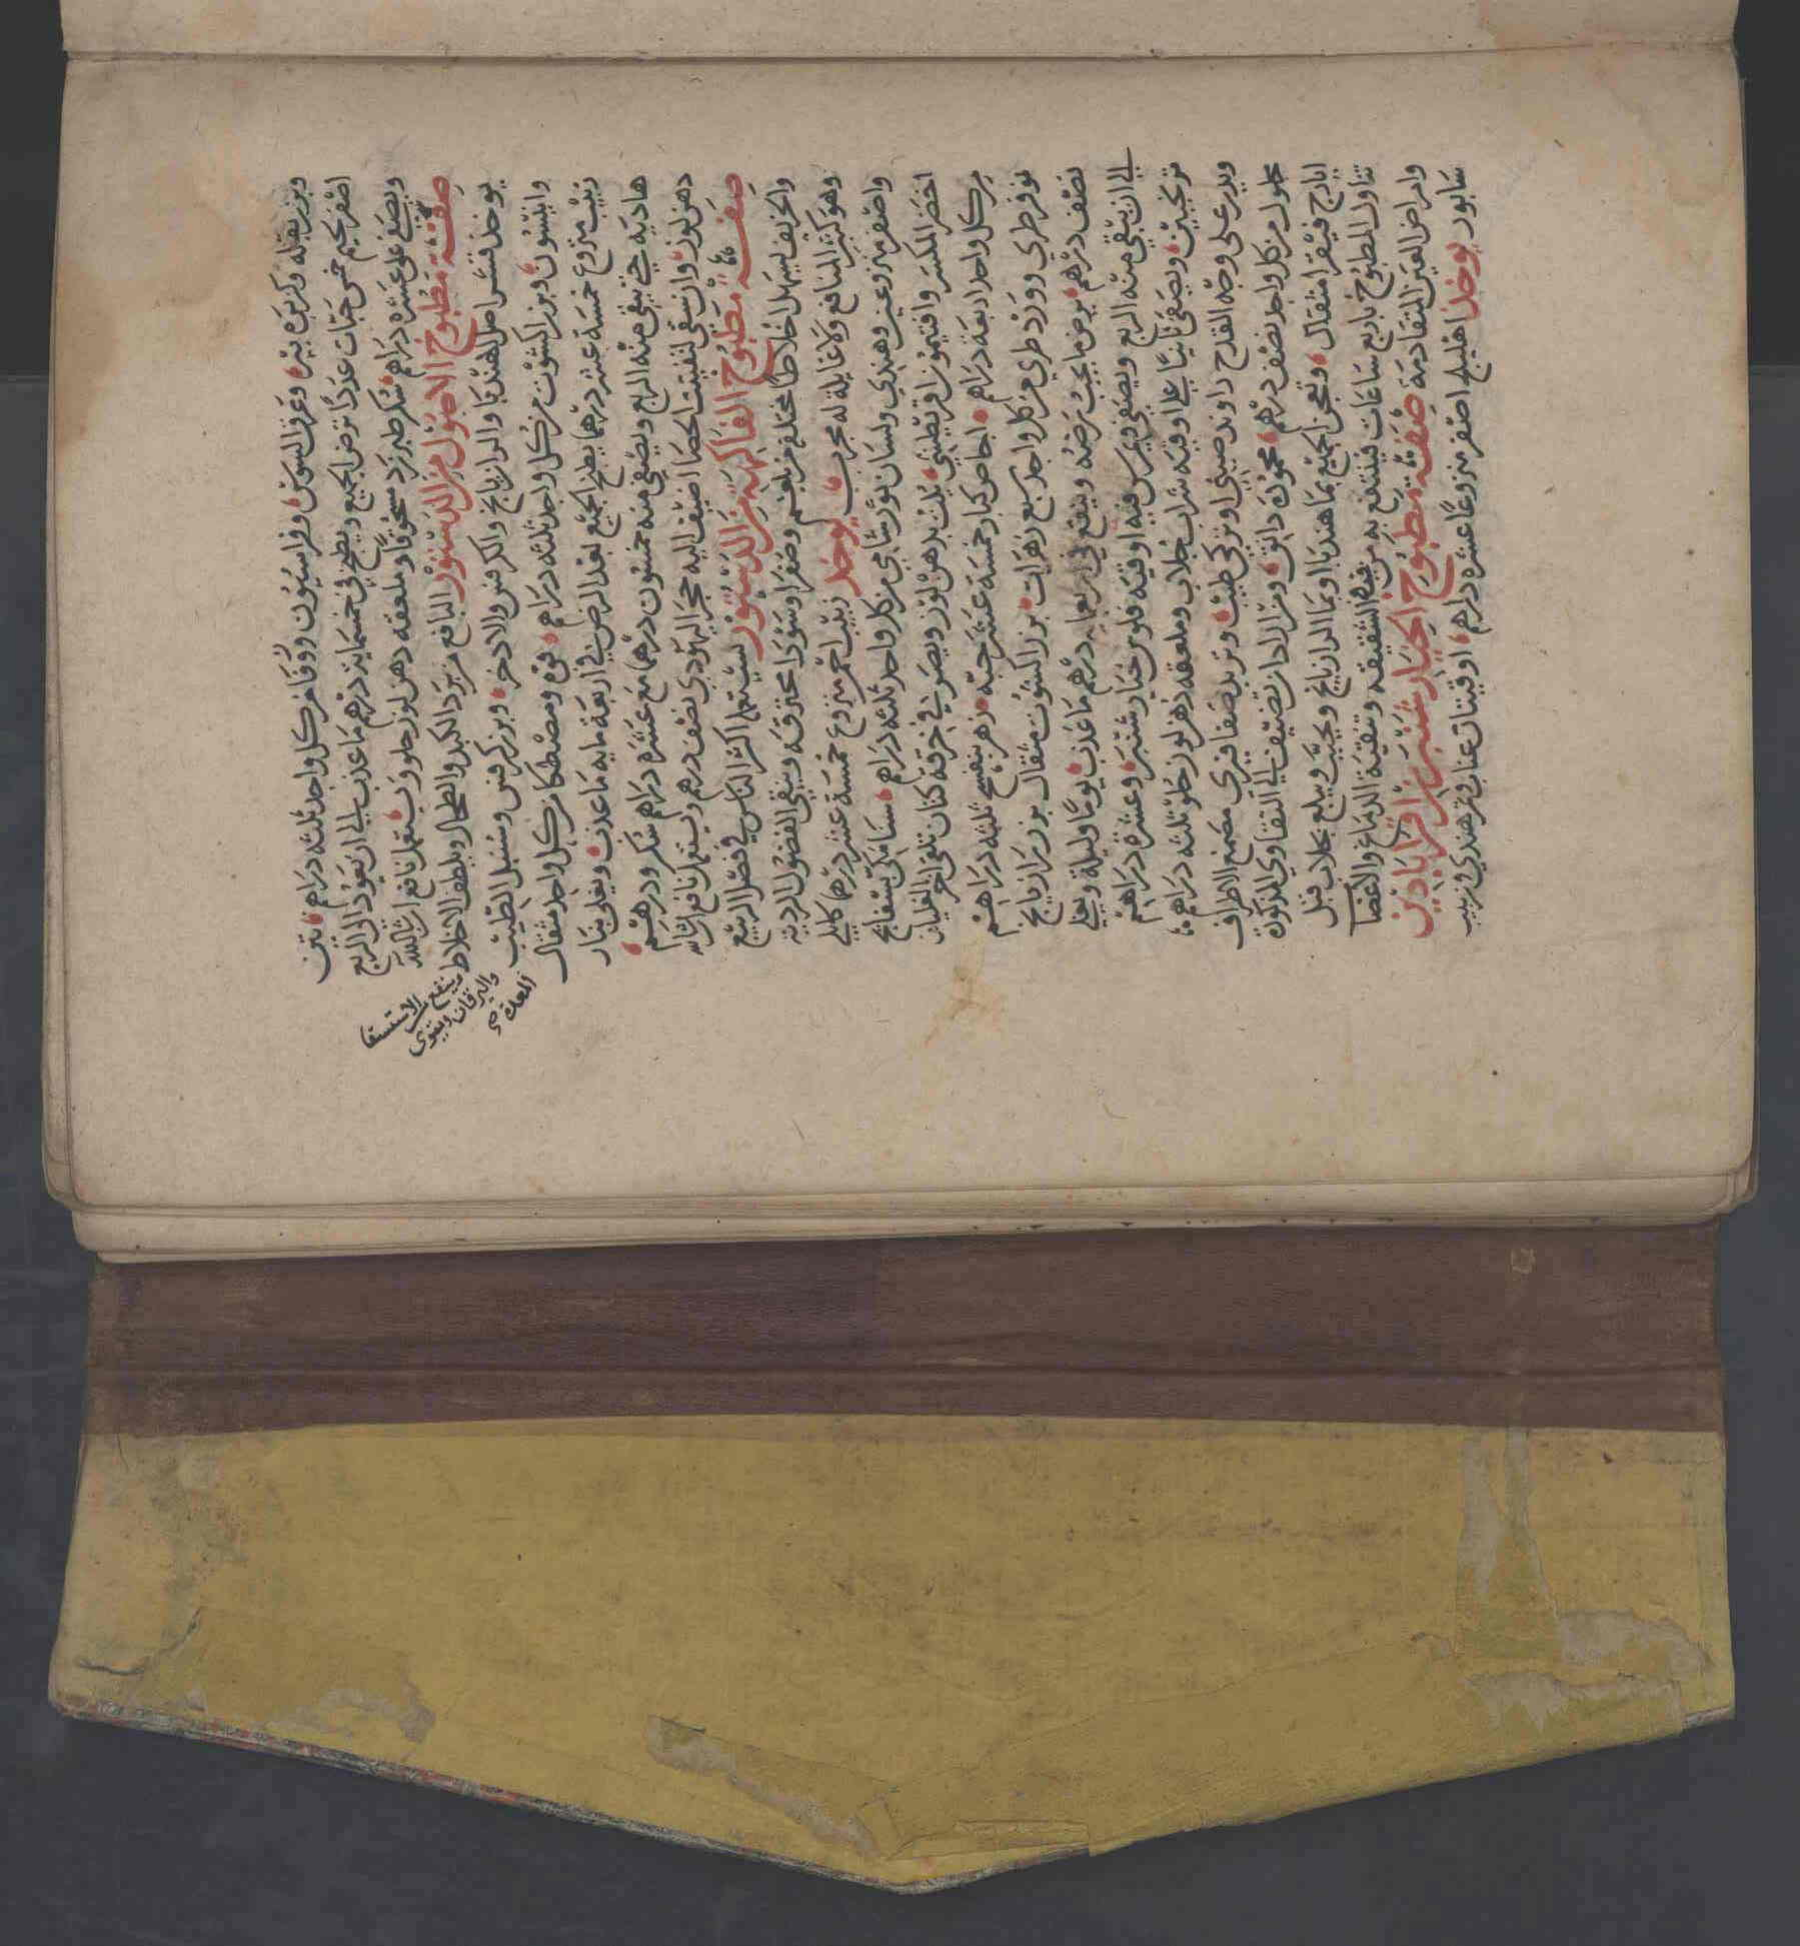 وبزر بقله وكزبره بئر وعرق السوس وفراسيون وزوفا من كل واحد ثلثه دراهم تين
اصفر لحيم خمس حبات عددا ترض الجميع ويطبخ في خمسمايه درهم ما عذب الي ان يعود الي الربع
ويصفى على عشره دراهم سكر طبرزد مسحوقا وملعقه دهن لوز حلو ويستعمل نافع ان شا الله
صفة مطبوخ الاصول من الدستور النافع من برد الكبد والطحال ويلطف الاخلاط وينفع الاستسقا
واليرقان ويقوي
المعدة صح
يوخذ قشر اصل الهندبا والرازيانج والكرفس والاذخر وبزر كرفس وسنبل الطيب
وانيسون وبزر الكشوت من كل واحد ثلثه دراهم فوه ومصطكا من كل واحد مثقال
زبيب منزوع خمسة عشر درهما يطبخ الجميع بعد الرض في اربعة مايه ما عذب ويغلي بنار
هاديه حتي يبقى منه الربع ويصفى منه خمسون درهما مع عشره دراهم سكر ودرهم
دهن لوز وان سقى لتفتيت الحصا اضيف اليه حجر اليهودي نصف درهم ويستعمل نافع ان شا الله
صفة مطبوخ الفاكهة من الدستور يستعمله اكثر الناس في فصل الربيع
والخريف يسهل اخلاطا مختلفه من بلغم وصفرا وسودا محترقه وينقى الفضول الرديه
وهو كثير المنافع ولا غايلة له مجرب يوخذ زبيب احمر منزوع خمسة عشر درهما كابلي
واصفر منزوعين وهندي ولسان ثور شامي من كل واحد ثلثه دراهم سنا مكي بسفايج
اخضر المكسر وافتيمون اقريطيشي يلت بدهن لوز ويصر في خرقة كتان تلقى اخر الغليان
من كل واحد اربعة دراهم اجاص كبار خمسة عشر حبه زهر بنفسج ثلثه دراهم
نوفر طري وورد طري من كل واحد سبع زهرات بزر الكشوت مثقال بزر رازيانج
نصف درهم يرض ما يجب رضه وينقع في اربعمايه درهم ما عذب يوما وليلة ويغلي
الي ان يبقى منه الربع ويصفي ويمرس فيه اوقيه فلوس خيار شنبر وعشرة دراهم
ترنجبين ويصفى ثانيا علي اوقيه شراب جلاب وملعقه دهن لوز حلو ثلثه دراهم
ويدر على وجه القدح راوند صيني او تركي طيب وتربد صفايري مصمغ الاطراف
محلول من كل واحد نصف درهم محموده دانق ومن الاداز تضيف الي التقاوي المذكورة
ايارج فيقرا مثقال وتعجن الجميع بما هندبا او بما الرازيانج ويحبب ويبلع بجلاب قبل
تناول المطبوخ باربع ساعات فينتفع به من الشقيقه وتنقية الدماغ والاعضا
وامراض العين المتقادمة صفة مطبوخ الخيار شنبر من اقراباذين
سابور يوخذ اهليلج اصفر منزوعا عشره دراهم اوقيتان عناب وتمر هندي وزبيب